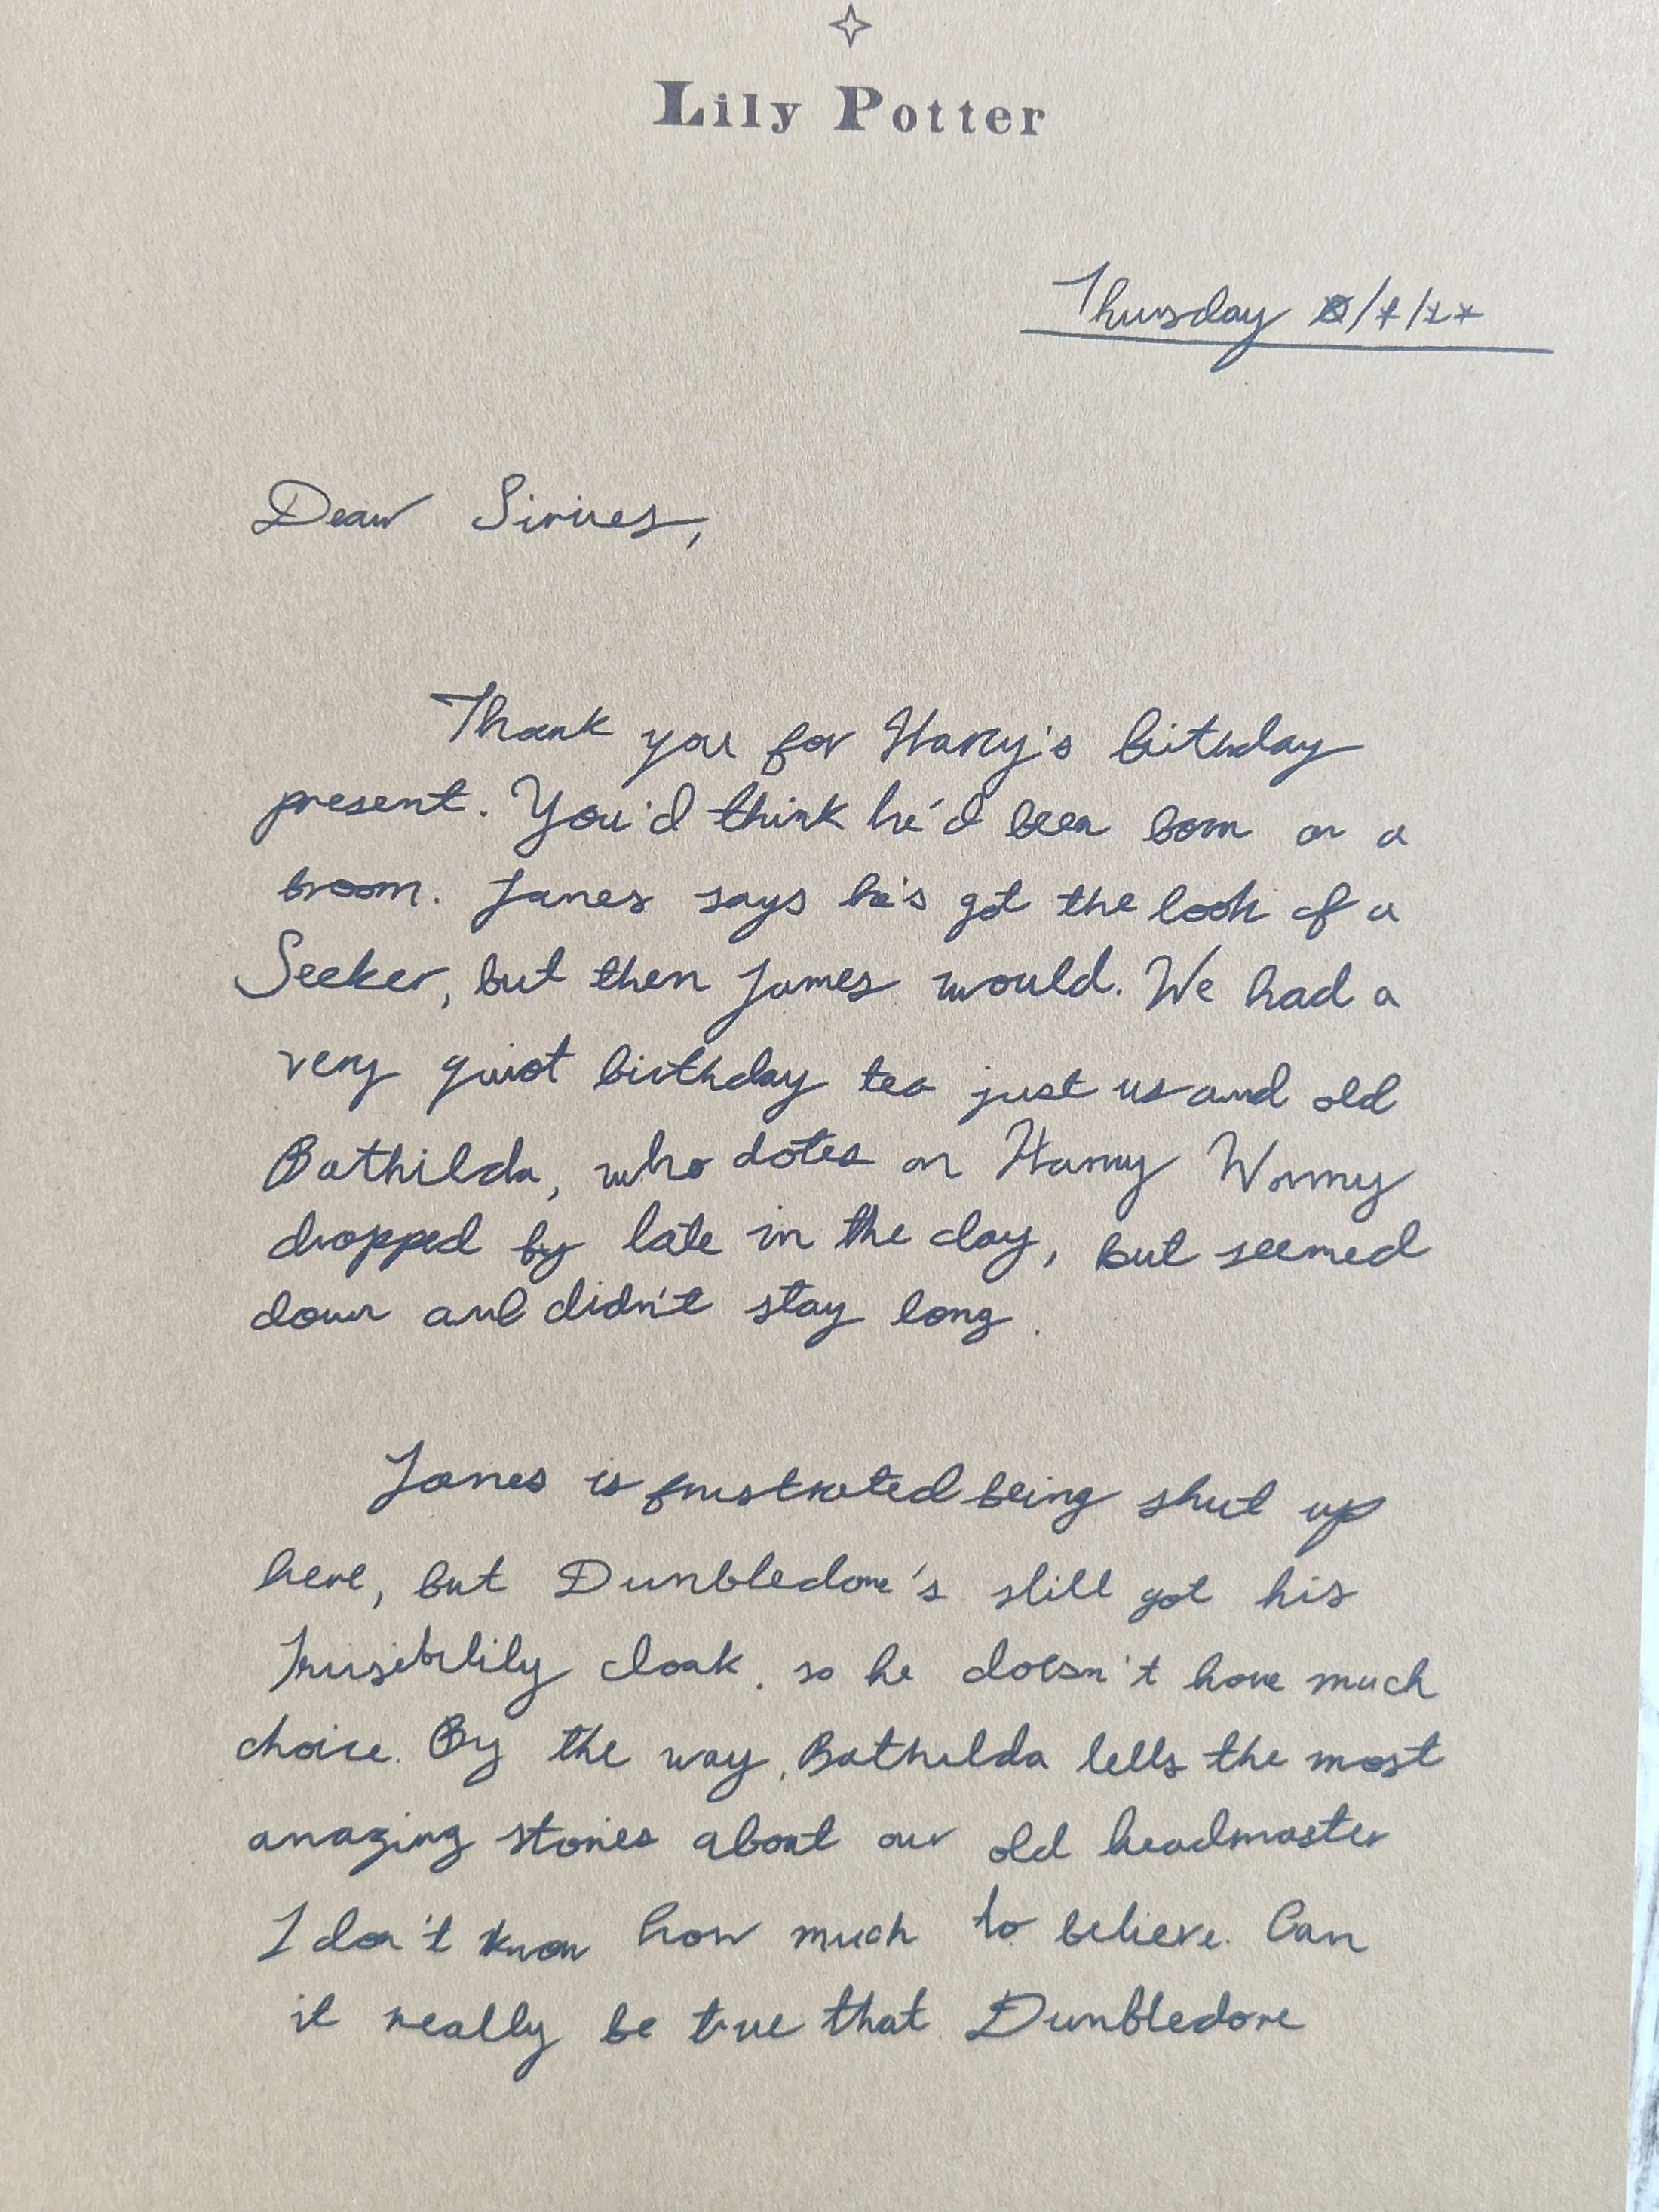 Lily Potter
Thursday
Dear Sirius,
Thank you for Harry's birthday
present. You'd think he'd been born on a
broom. James says he's got the look of a
Seeker, but then James would. We had a
very quiet birthday tea just us and old
Bathilda, who dotes on Harry Wormy
dropped by late in the day, but seemed
down and didn't stay long.
James is frustrated being shut up
here, but Dumbledore's still got his
Invisibility cloak. so he doesn't have much
choice. By the way, Bathilda tells the most
amazing stories about our old headmaster
I don't know how much to believe. Can
it really be true that Dumbledore